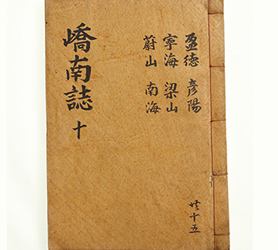 盈德 彦陽
寧海 梁山
蔚山 南海
嶠南誌 十
共十五